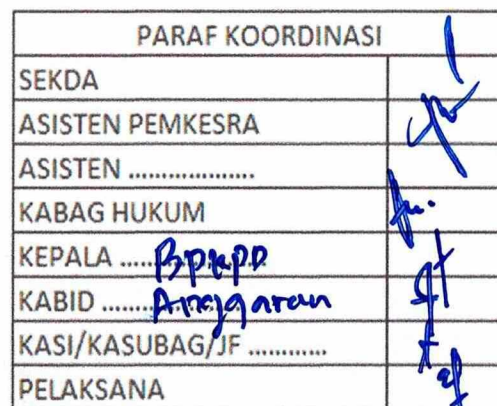 PARAF KOORDINASI
SEKDA
ASISTEN PEMKESRA
ASISTEN ...................
KABAG HUKUM
KEPALA ..... BPKPD
KABID ........ Anggaran
KASI/KASUBAG/JF ............
PELAKSANA